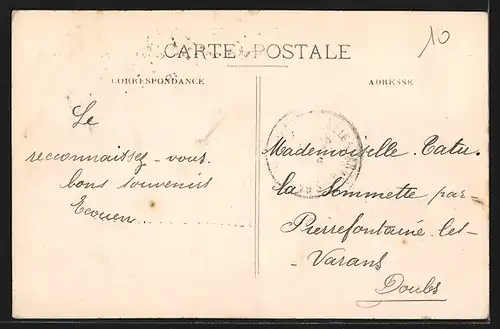 10
CARTE POSTALE
CORRESPONDANCE
ADRESSE
Le
recconnaissez-vous.
bons souvenirs
Ecouen
Mademoiselle. Tatu.
la Sommette par
Pierrefontaine les-
- Varans
Doubs